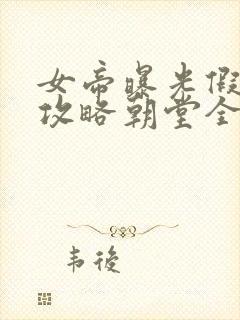 女帝曝光假
攻略朝堂全
韦後